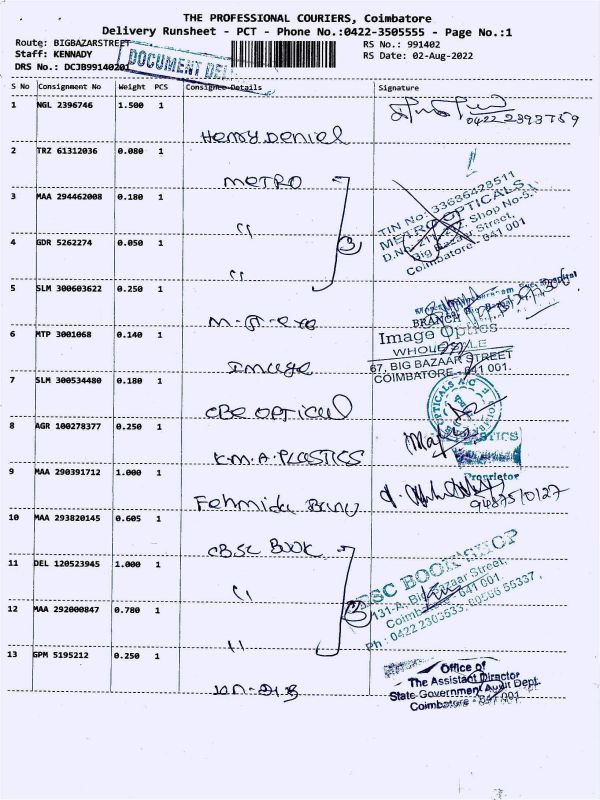 THE PROFESSIONAL COURIERS, Coimbatore
Delivery Runsheet - PCT - Phone No.:0422-3505555 - Page No.:1
Route: BIGBAZARSTREET
RS No.: 991402
Staff: KENNADY
RS Date: 02-Aug-2022
DRS No.: DCJB99140201
DOCUMENT DEL
S No Consignment No Weight PCS Consignee Details Signature
1 NGL 2396746 1.500 1
Henry Deniel
0422 2393759
2 TRZ 61312036 0.080 1
METRO
3 MAA 294462008 0.180 1
"
3
TIN No: 33636428511
METRO OPTICALS
Shop No-5,
Big Bazaar Street,
Coimbatore - 641 001
4 GDR 5262274 0.050 1
"
5 SLM 300603622 0.250 1
BRANCH
6 MTP 3001068 0.140 1
Image
Image Optics
WHOLESALE
67, BIG BAZAAR STREET
COIMBATORE - 641 001.
7 SLM 300534480 0.180 1
CBE OPTICAL
OPTICALS
8 AGR 100278377 0.250 1
K.M.A. PLASTICS
9 MAA 290391712 1.000 1
Fehmida Banu
Proprietor
10 MAA 293820145 0.605 1
CBSC BOOK
11 DEL 120523945 1.000 1
"
3
BOOK SHOP
131-A, Big Bazaar Street,
Coimbatore - 641 001.
Ph : 0422 2303633,
12 MAA 292000847 0.780 1
"
13 GPM 5195212 0.250 1
Office of
The Assistant Director
State Government Audit Dept.
Coimbatore - 641 001